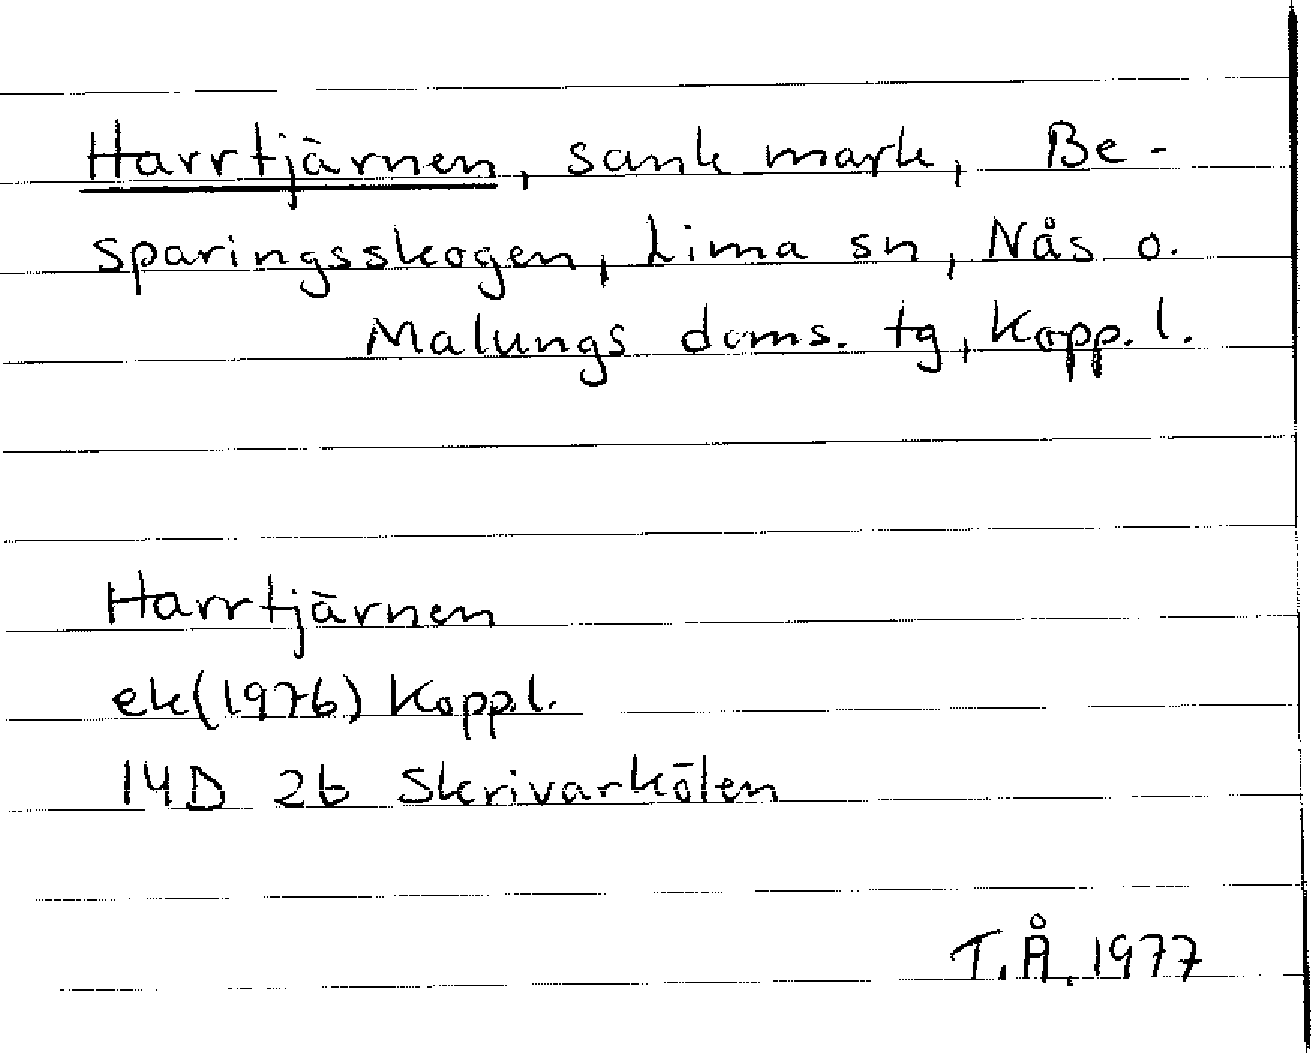 Harrtjärnen, sank mark, Be-
sparingsskogen, Lima sn, Nås o.
Malungs doms. tg, Kopp. l.
Harrtjärnen
ek(1976) Kopp.l.
14D 2b Skrivarkölen
T.Å. 1977